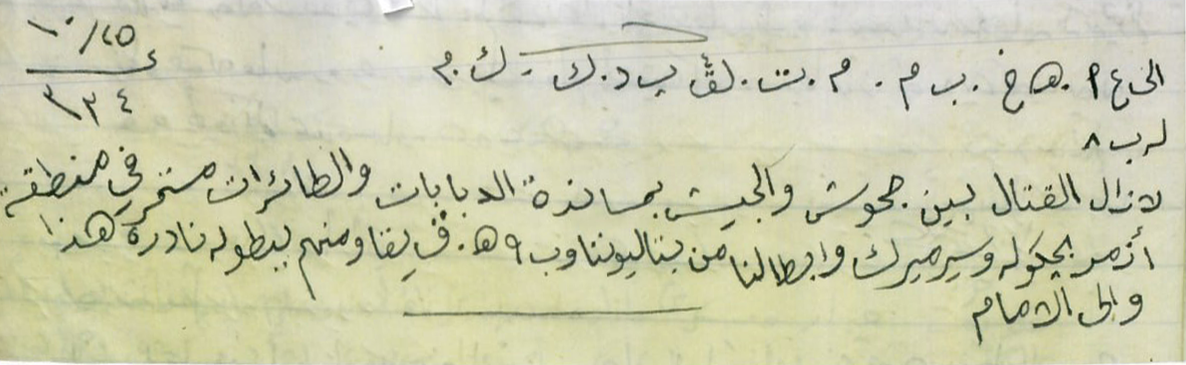 ١٠/٢٥
٤
٣٣٤
الى ع ٩ . هـ خ . ب م . م . ت . لق ب د . ك - ك . م
لـ ب ٨
لازال القتال بين جحوش والجيش بمساندة الدبابات والطائرات مستمر في منطقة
أزمر بچكوله وسيرميرك وابطالنا من بتاليوننا وب ٩ هـ . ق يقاومنهم ببطوله نادرة هذا
والى الامام